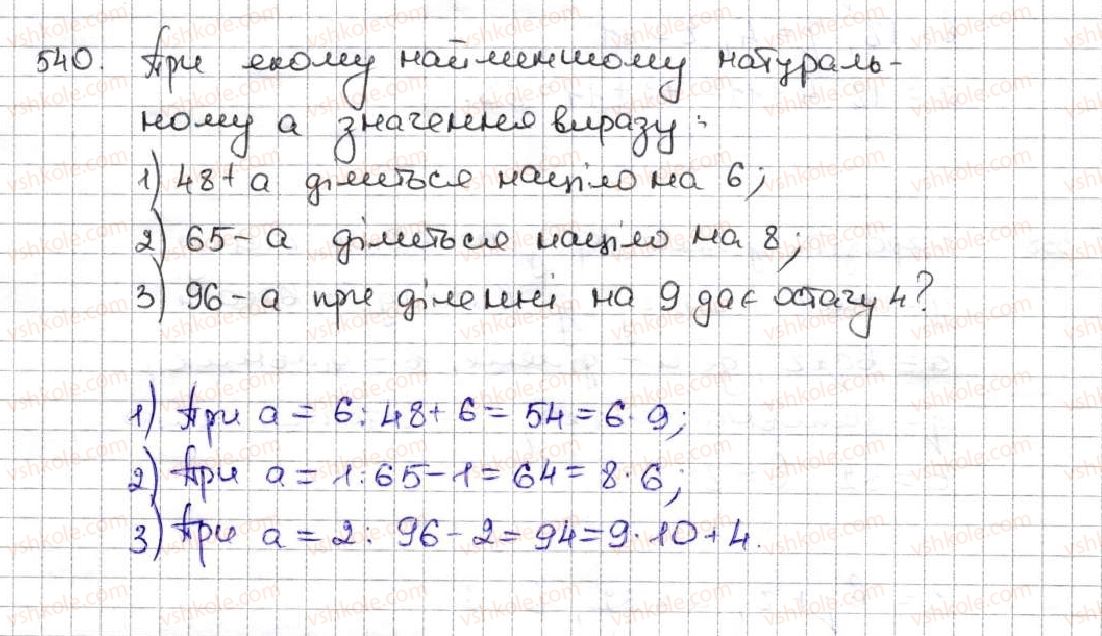 540. При якому найменшому натураль-
ному а значення виразу:
1) 48+а ділиться націло на 6;
2) 65-а ділиться націло на 8;
3) 96-а при діленні на 9 дає остачу 4?
1) При а = 6: 48+6=54=6·9;
2) При а = 1: 65-1=64=8·6;
3) При а = 2: 96-2=94=9·10+4.